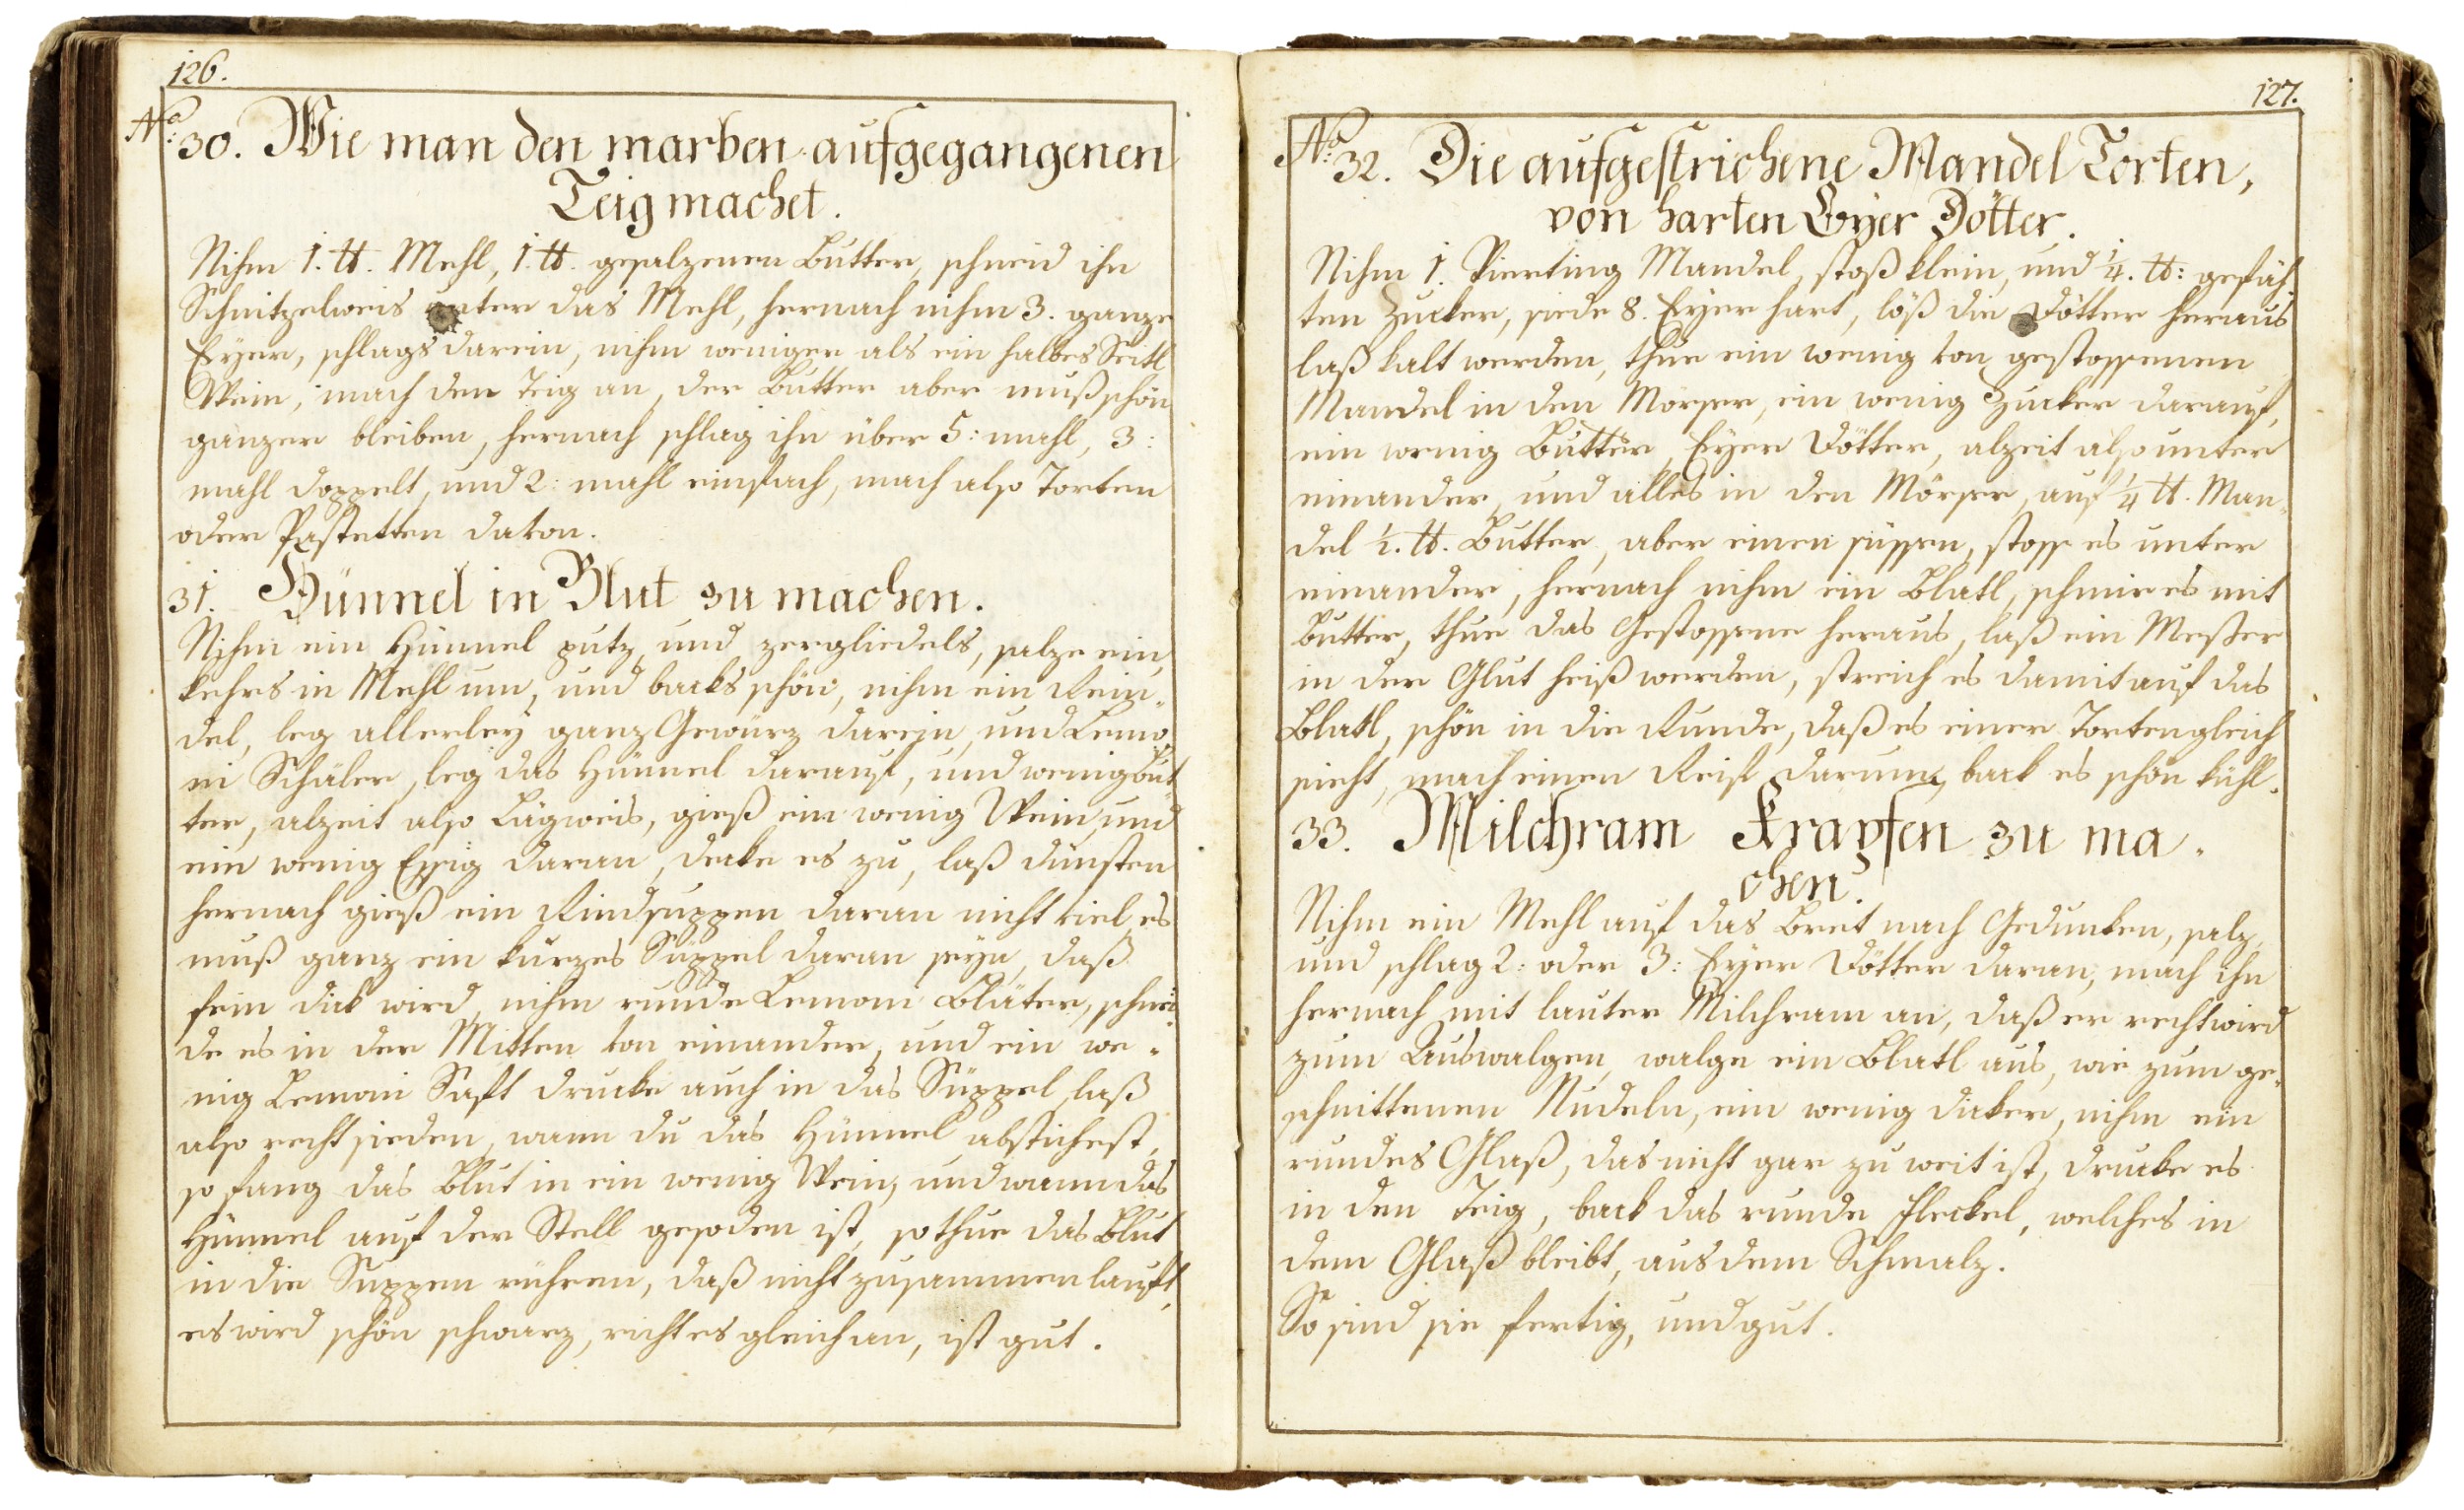 126.
No: 30. Wie man den marben aufgegangenen
Teig machet.
Nihm 1. ℔. Mehl, 1. ℔. gesalzenen Butter, schneid ihn
Schnitzelweis unter das Mehl, hernach nihm 3. ganze
Eÿer, schlags darein, nihm weniger als ein halbes Seitl
Wein, mach den Teig an, der Butter aber muß schön
ganzer bleiben, hernach schlag ihn über 5: mahl, 3:
mahl doppelt, und 2: mahl einfach, mach also Torten
oder Pastetten davon.
31. Hünnel in Blut zu machen.
Nihm ein Hünnel putz, und zergliedels, salze ein,
kehrs in Mehl um, und backs schön, nihm ein Rein„
del, leg allerleÿ ganz Gewürz darein, und Lemo„
ni Schäler, leg das Hünnel darauf, und wenig But
ter, alzeit also Lägweis, gieß ein wenig Wein, und
ein wenig Essig daran, decke es zu, laß dünsten
hernach gieß ein Rindsuppen daran nicht viel, es
muß ganz ein kurzes Süppel daran seÿn, daß
fein dick wird, nihm runde Lemoni Bläter, schnei„
de es in der Mitten von einander, und ein we„
nig Lemoni Saft drucke auch in das Süppel, laß
also recht sieden, wann du das Hünnel abstichest,
so fang das Blut in ein wenig Wein, und wann das
Hünnel auf der Stell gesoden ist, so thue das Blut
in die Suppen rühren, daß nicht zusammen lauft,
es wird schön schwarz, richt es gleich an, ist gut.
127.
No: 32. Die aufgestrichene Mandel Torten,
von harten Eÿer Dötter.
Nihm 1. Vierting Mandel, stoß klein, und ¼. ℔: gefäh„
ten Zucker, siede 8. Eÿer hart, löß die Dötter heraus
laß kalt werden, thue ein wenig von gestossenen
Mandel in den Mörser, ein wenig Zucker darauf,
ein wenig Butter, Eÿer Dötter, alzeit also unter
einander, und alles in den Mörser, auf ¼ ℔. Man„
del ½. ℔. Butter, aber einen süssen, stosse es unter
einander, hernach nihm ein Blatl, schmir es mit
Butter, thue das Gestossene heraus, laß ein Messer
in der Glut heiß werden, streich es damit auf das
Blatl, schön in die Runde, daß es einer Torten gleich
sieht, mach einen Reif darum, back es schön kühl.
33. Milchram Krapfen zu ma„
chen.
Nihm ein Mehl auf das Bret nach Gedunken, salz,
und schlag 2: oder 3: Eÿer Dötter daran, mach ihn
hernach mit lauter Milchram an, daß er recht wird
zum Auswalgen, walge ein Blatl aus, wie zum ge„
schnittenen Nudeln, ein wenig dicker, nihm ein
rundes Glaß, das nicht gar zu weit ist, drucke es
in den Teig, back das runde Fleckel, welches in
dem Glaß bleibt, aus dem Schmalz.
So sind sie fertig, und gut.